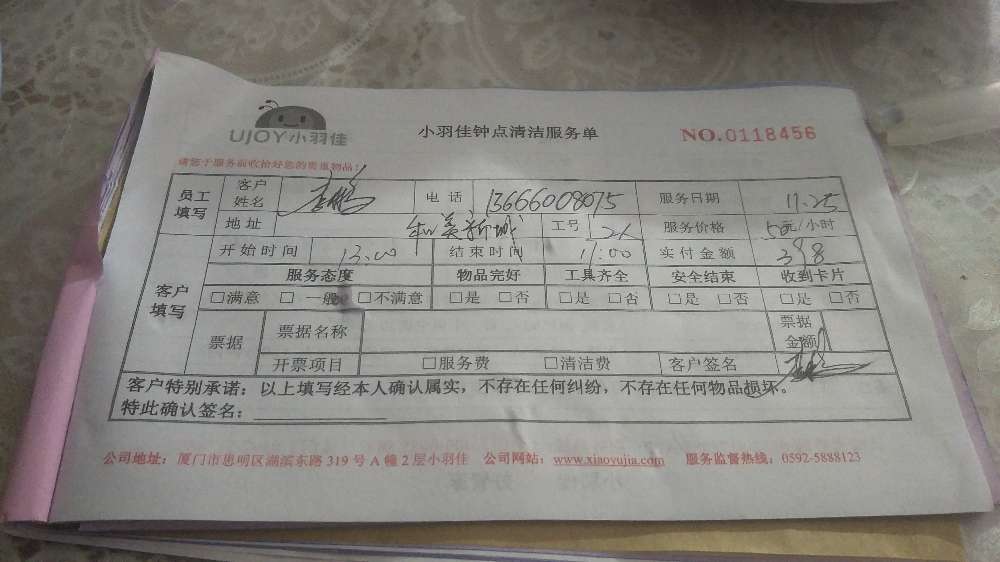 UJOY小羽佳
小羽佳钟点清洁服务单 NO.0118456
请您于服务前收拾好您的贵重物品!
员工填写 客户姓名 电话 13666008075 服务日期 11.25
地址 新城 工号 服务价格 50元/小时
客户填写 开始时间 13:00 结束时间 17:00 实付金额 398
服务态度 物品完好 工具齐全 安全结束 收到卡片
□满意 □一般 □不满意 □是 □否 □是 □否 □是 □否 □是 □否
票据 票据名称 票据金额
开票项目 □服务费 □清洁费 客户签名
客户特别承诺:以上填写经本人确认属实,不存在任何纠纷,不存在任何物品损坏。
特此确认签名:
公司地址:厦门市思明区湖滨东路319号A幢2层小羽佳 公司网站:www.xiaoyujia.com 服务监督热线:0592-5888123